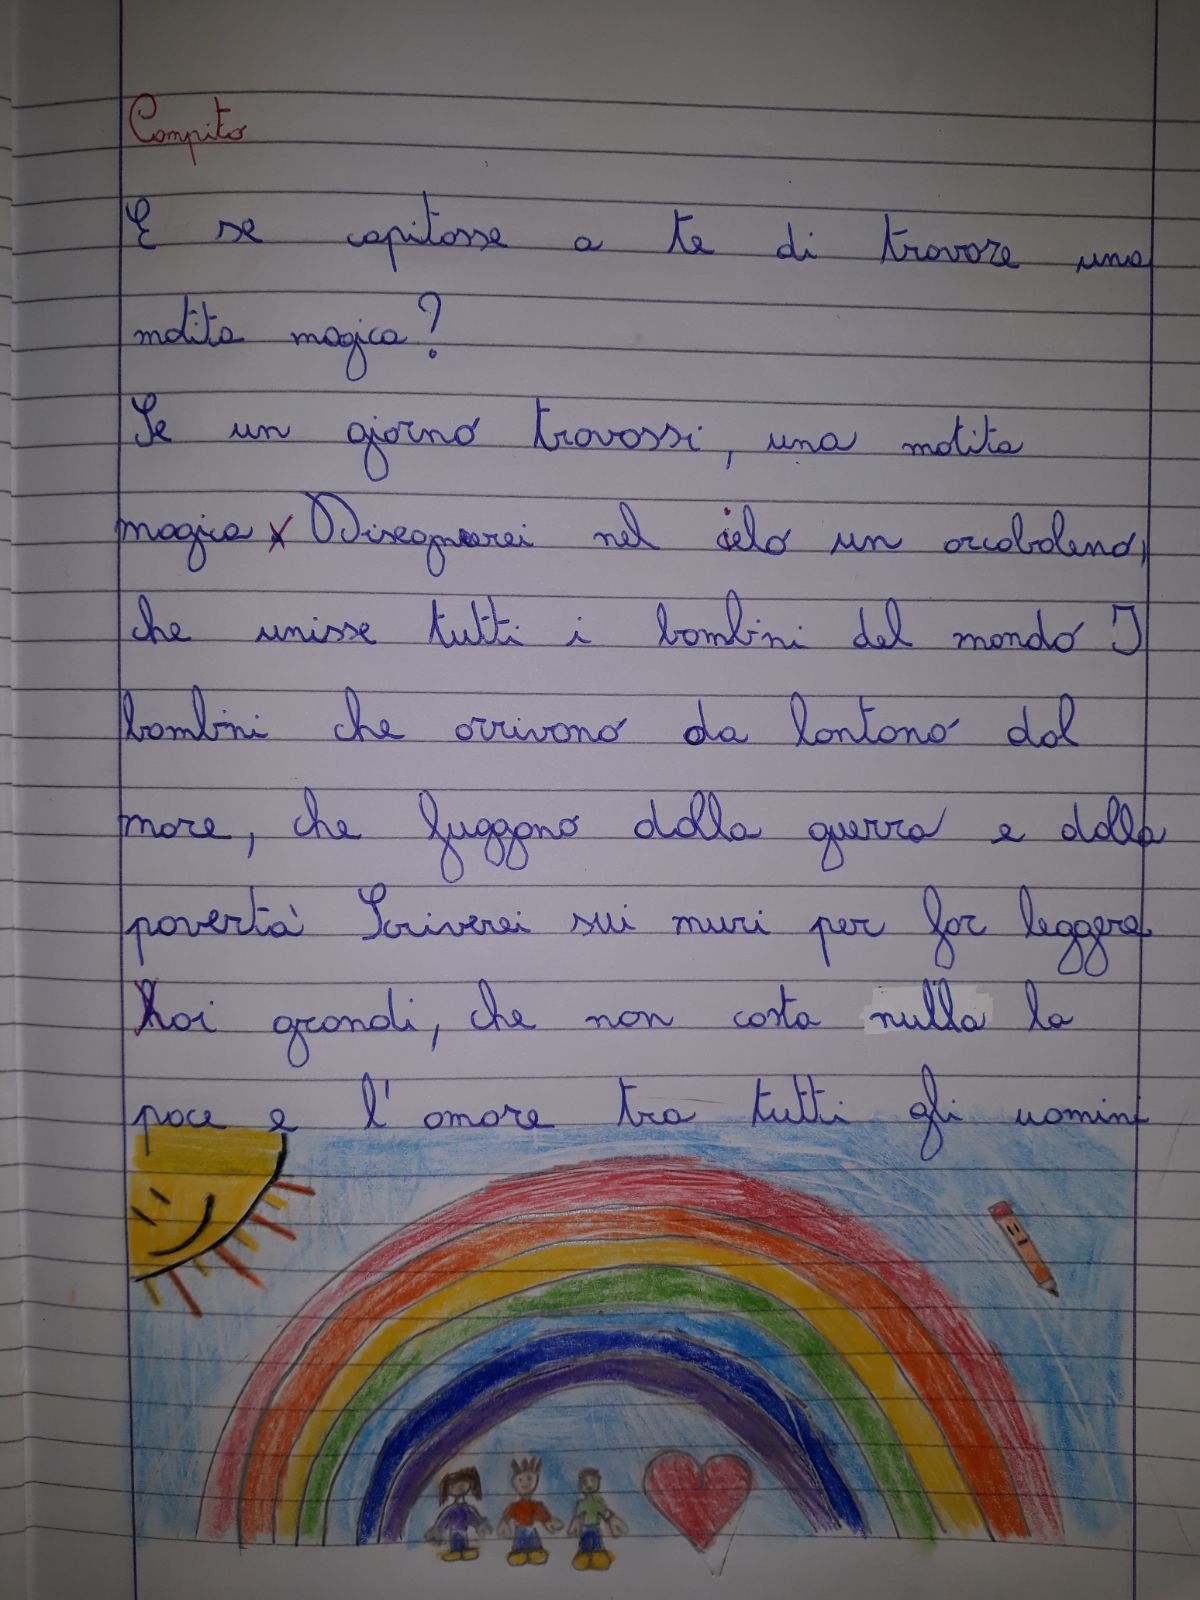 Compito
E se capitasse a te di trovare una
matita magica?
Se un giorno trovassi, una matita
magica Disegnerei nel cielo un arcobaleno,
che unisse tutti i bambini del mondo I
bambini che arrivano da lontano dal
mare, che fuggono dalla guerra e dalla
povertà Scriverei sui muri per far leggere
ai grandi, che non costa nulla la
pace e l'amore tra tutti gli uomini